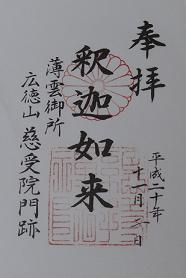 奉拝
平成二十年
十一月 日
釈迦如来
薄雲御所
広徳山 慈受院門跡